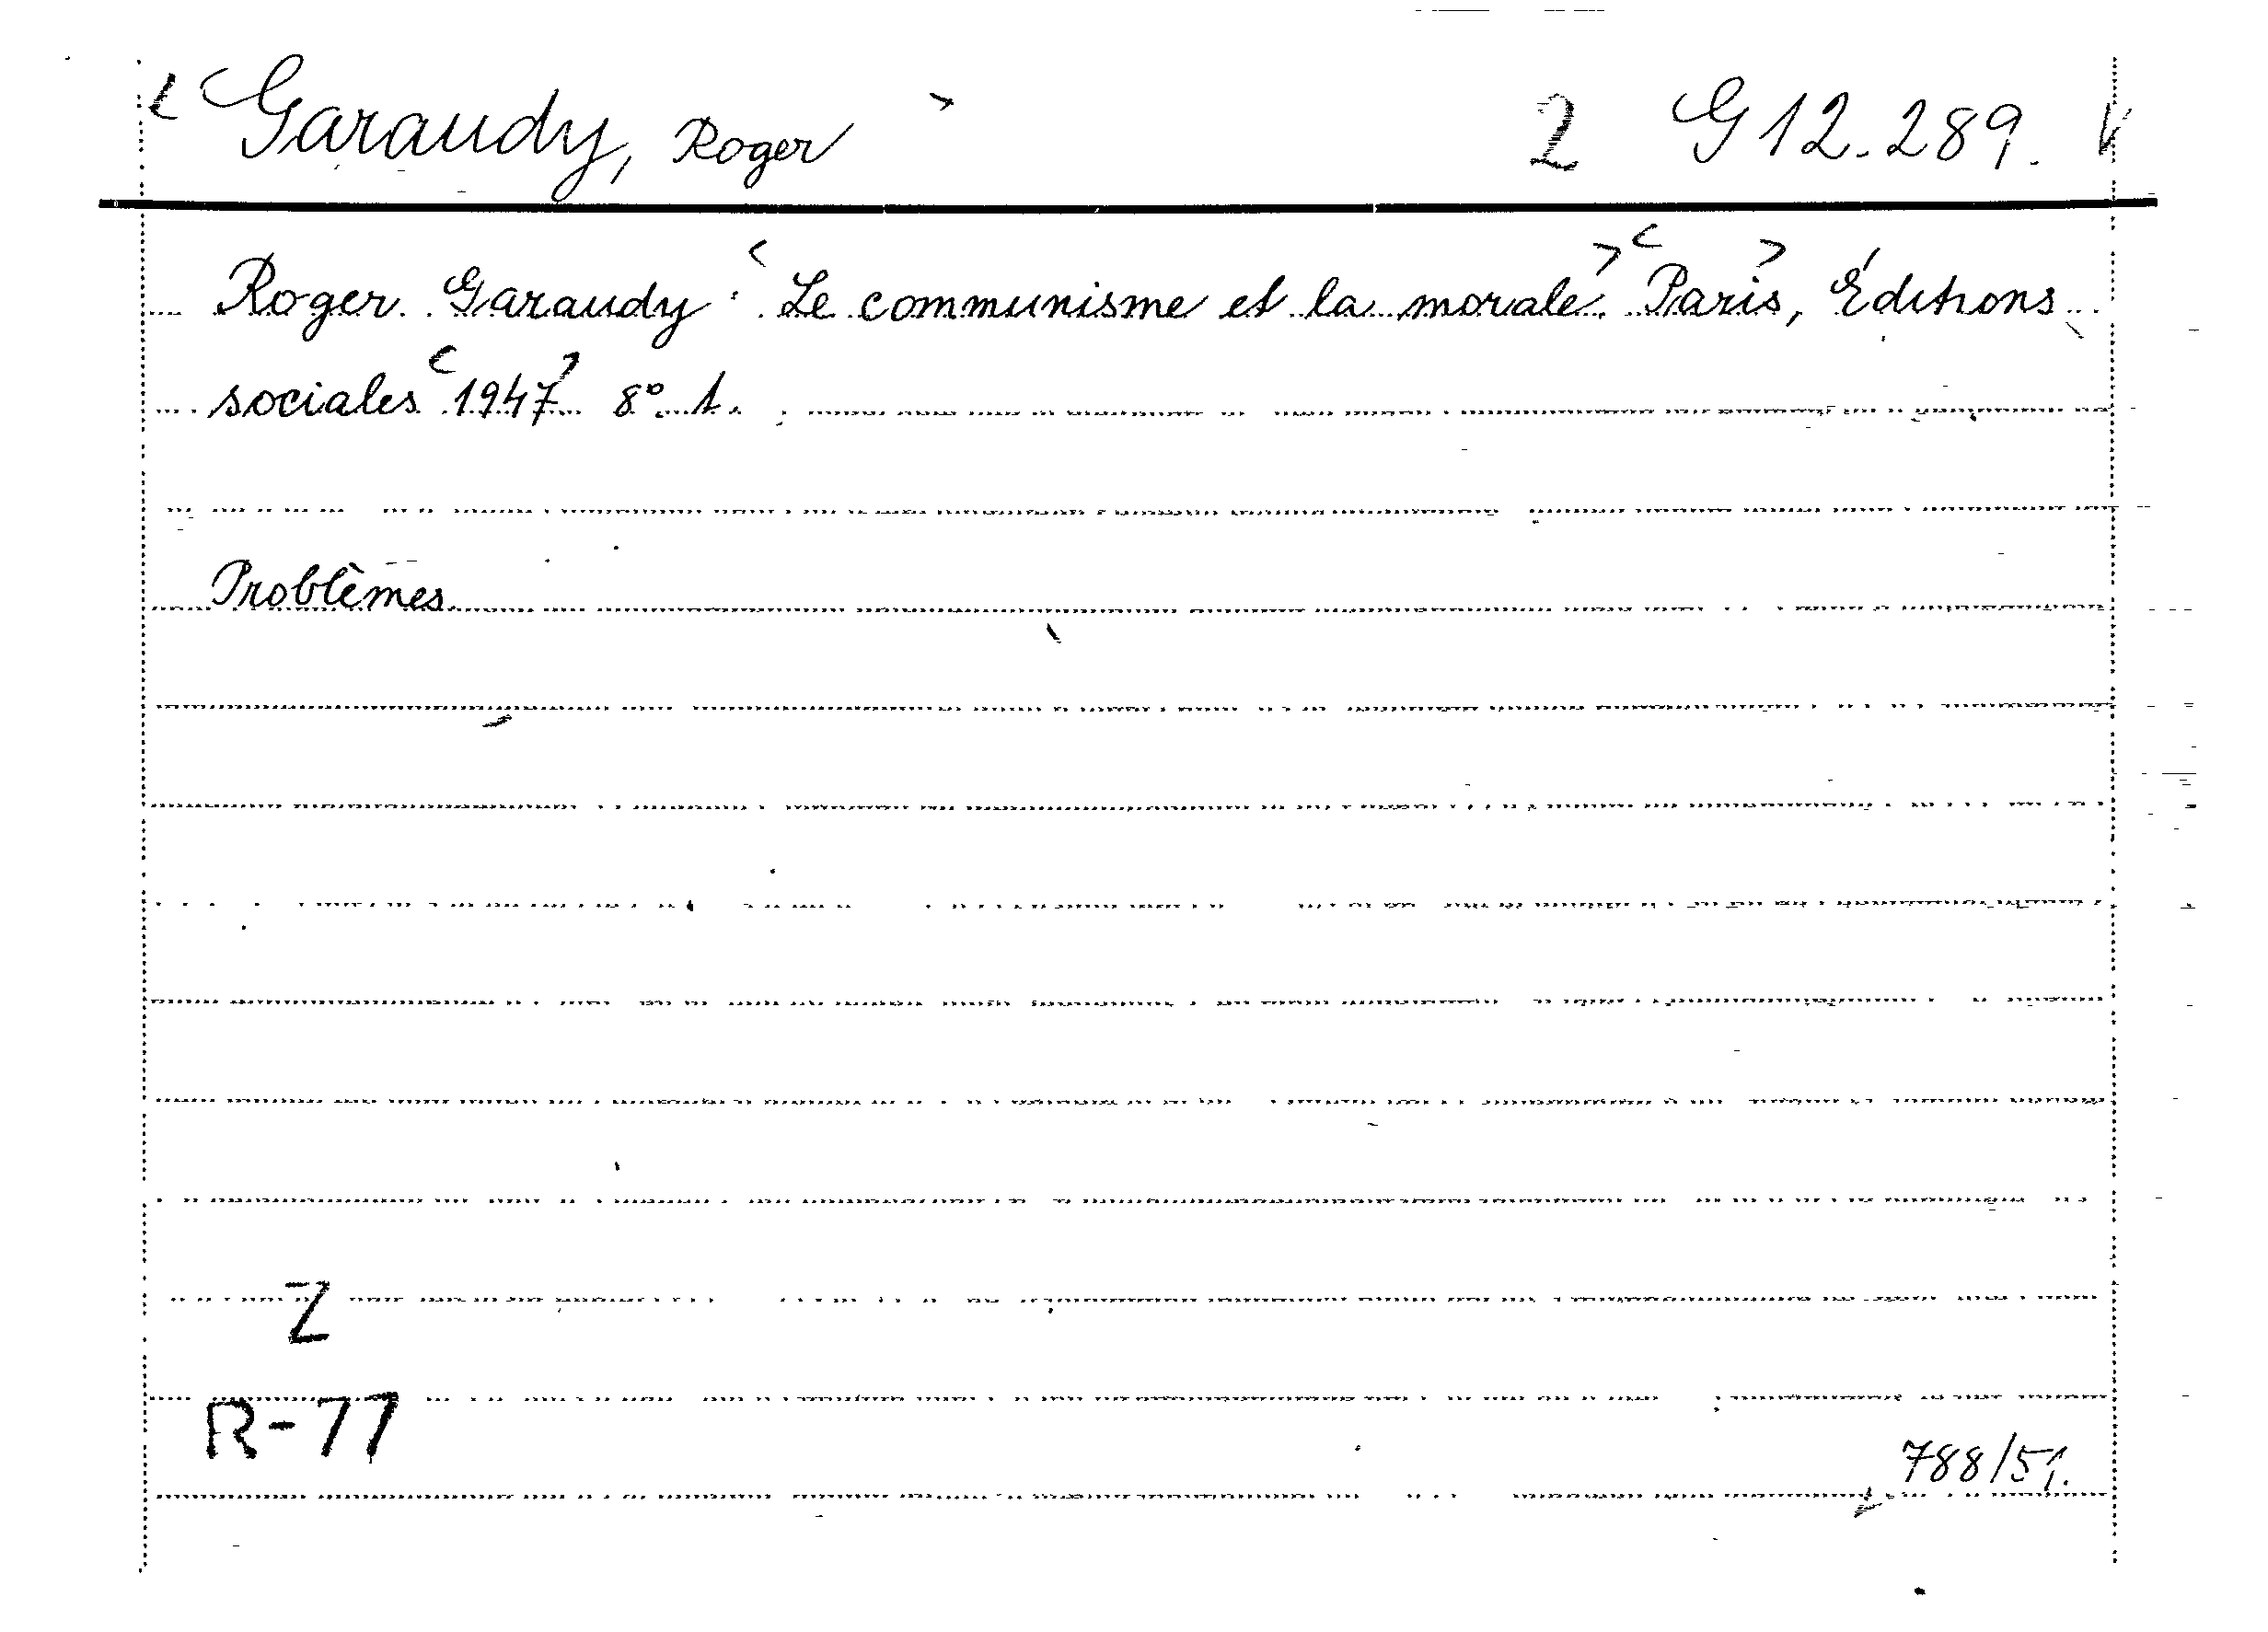 < Garaudy, Roger > 2 G 12.289. V
Roger Garaudy : < Le communisme et la morale. > < Paris >, Éditions
sociales < 1947 > 8°. 1.
Problèmes
Z
R-77
788/51.